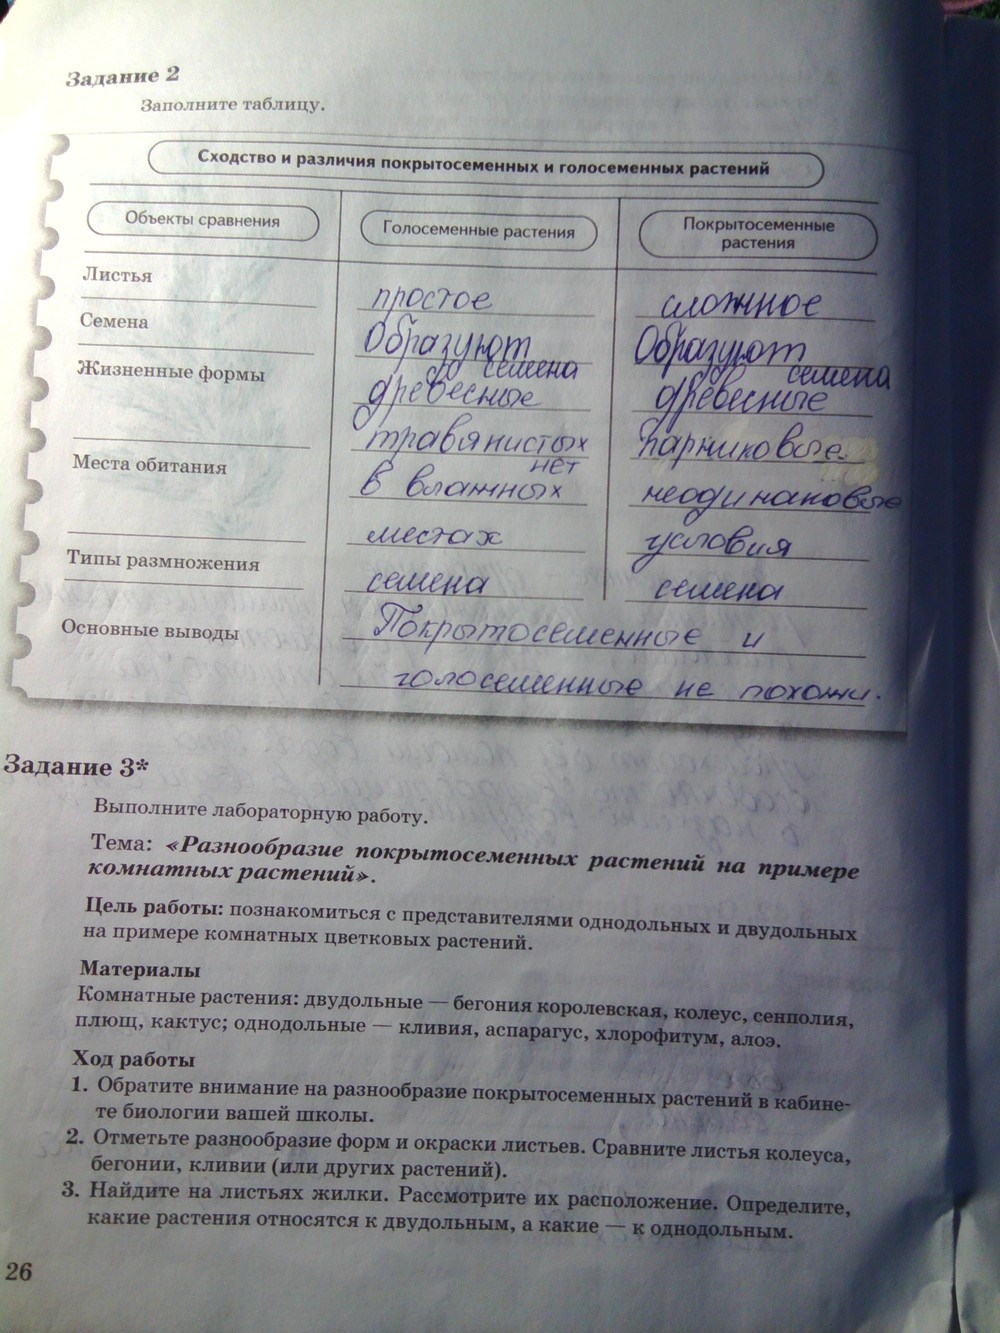 Задание 2
Заполните таблицу.
Сходство и различия покрытосеменных и голосеменных растений
Объекты сравнения
Голосеменные растения
Покрытосеменные
растения
Листья
простое
сложное
Семена
Образуют
семена
Образуют
семена
Жизненные формы
древесные
травянистых
нет
древесные
парниковые
Места обитания
в влажных
местах
неодинаковые
условия
Типы размножения
семена
семена
Основные выводы
Покрытосеменные и
голосеменные не похожи.
Задание 3*
Выполните лабораторную работу.
Тема: «Разнообразие покрытосеменных растений на примере
комнатных растений».
Цель работы: познакомиться с представителями однодольных и двудольных
на примере комнатных цветковых растений.
Материалы
Комнатные растения: двудольные — бегония королевская, колеус, сенполия,
плющ, кактус; однодольные — кливия, аспарагус, хлорофитум, алоэ.
Ход работы
1. Обратите внимание на разнообразие покрытосеменных растений в кабине-
те биологии вашей школы.
2. Отметьте разнообразие форм и окраски листьев. Сравните листья колеуса,
бегонии, кливии (или других растений).
3. Найдите на листьях жилки. Рассмотрите их расположение. Определите,
какие растения относятся к двудольным, а какие — к однодольным.
26